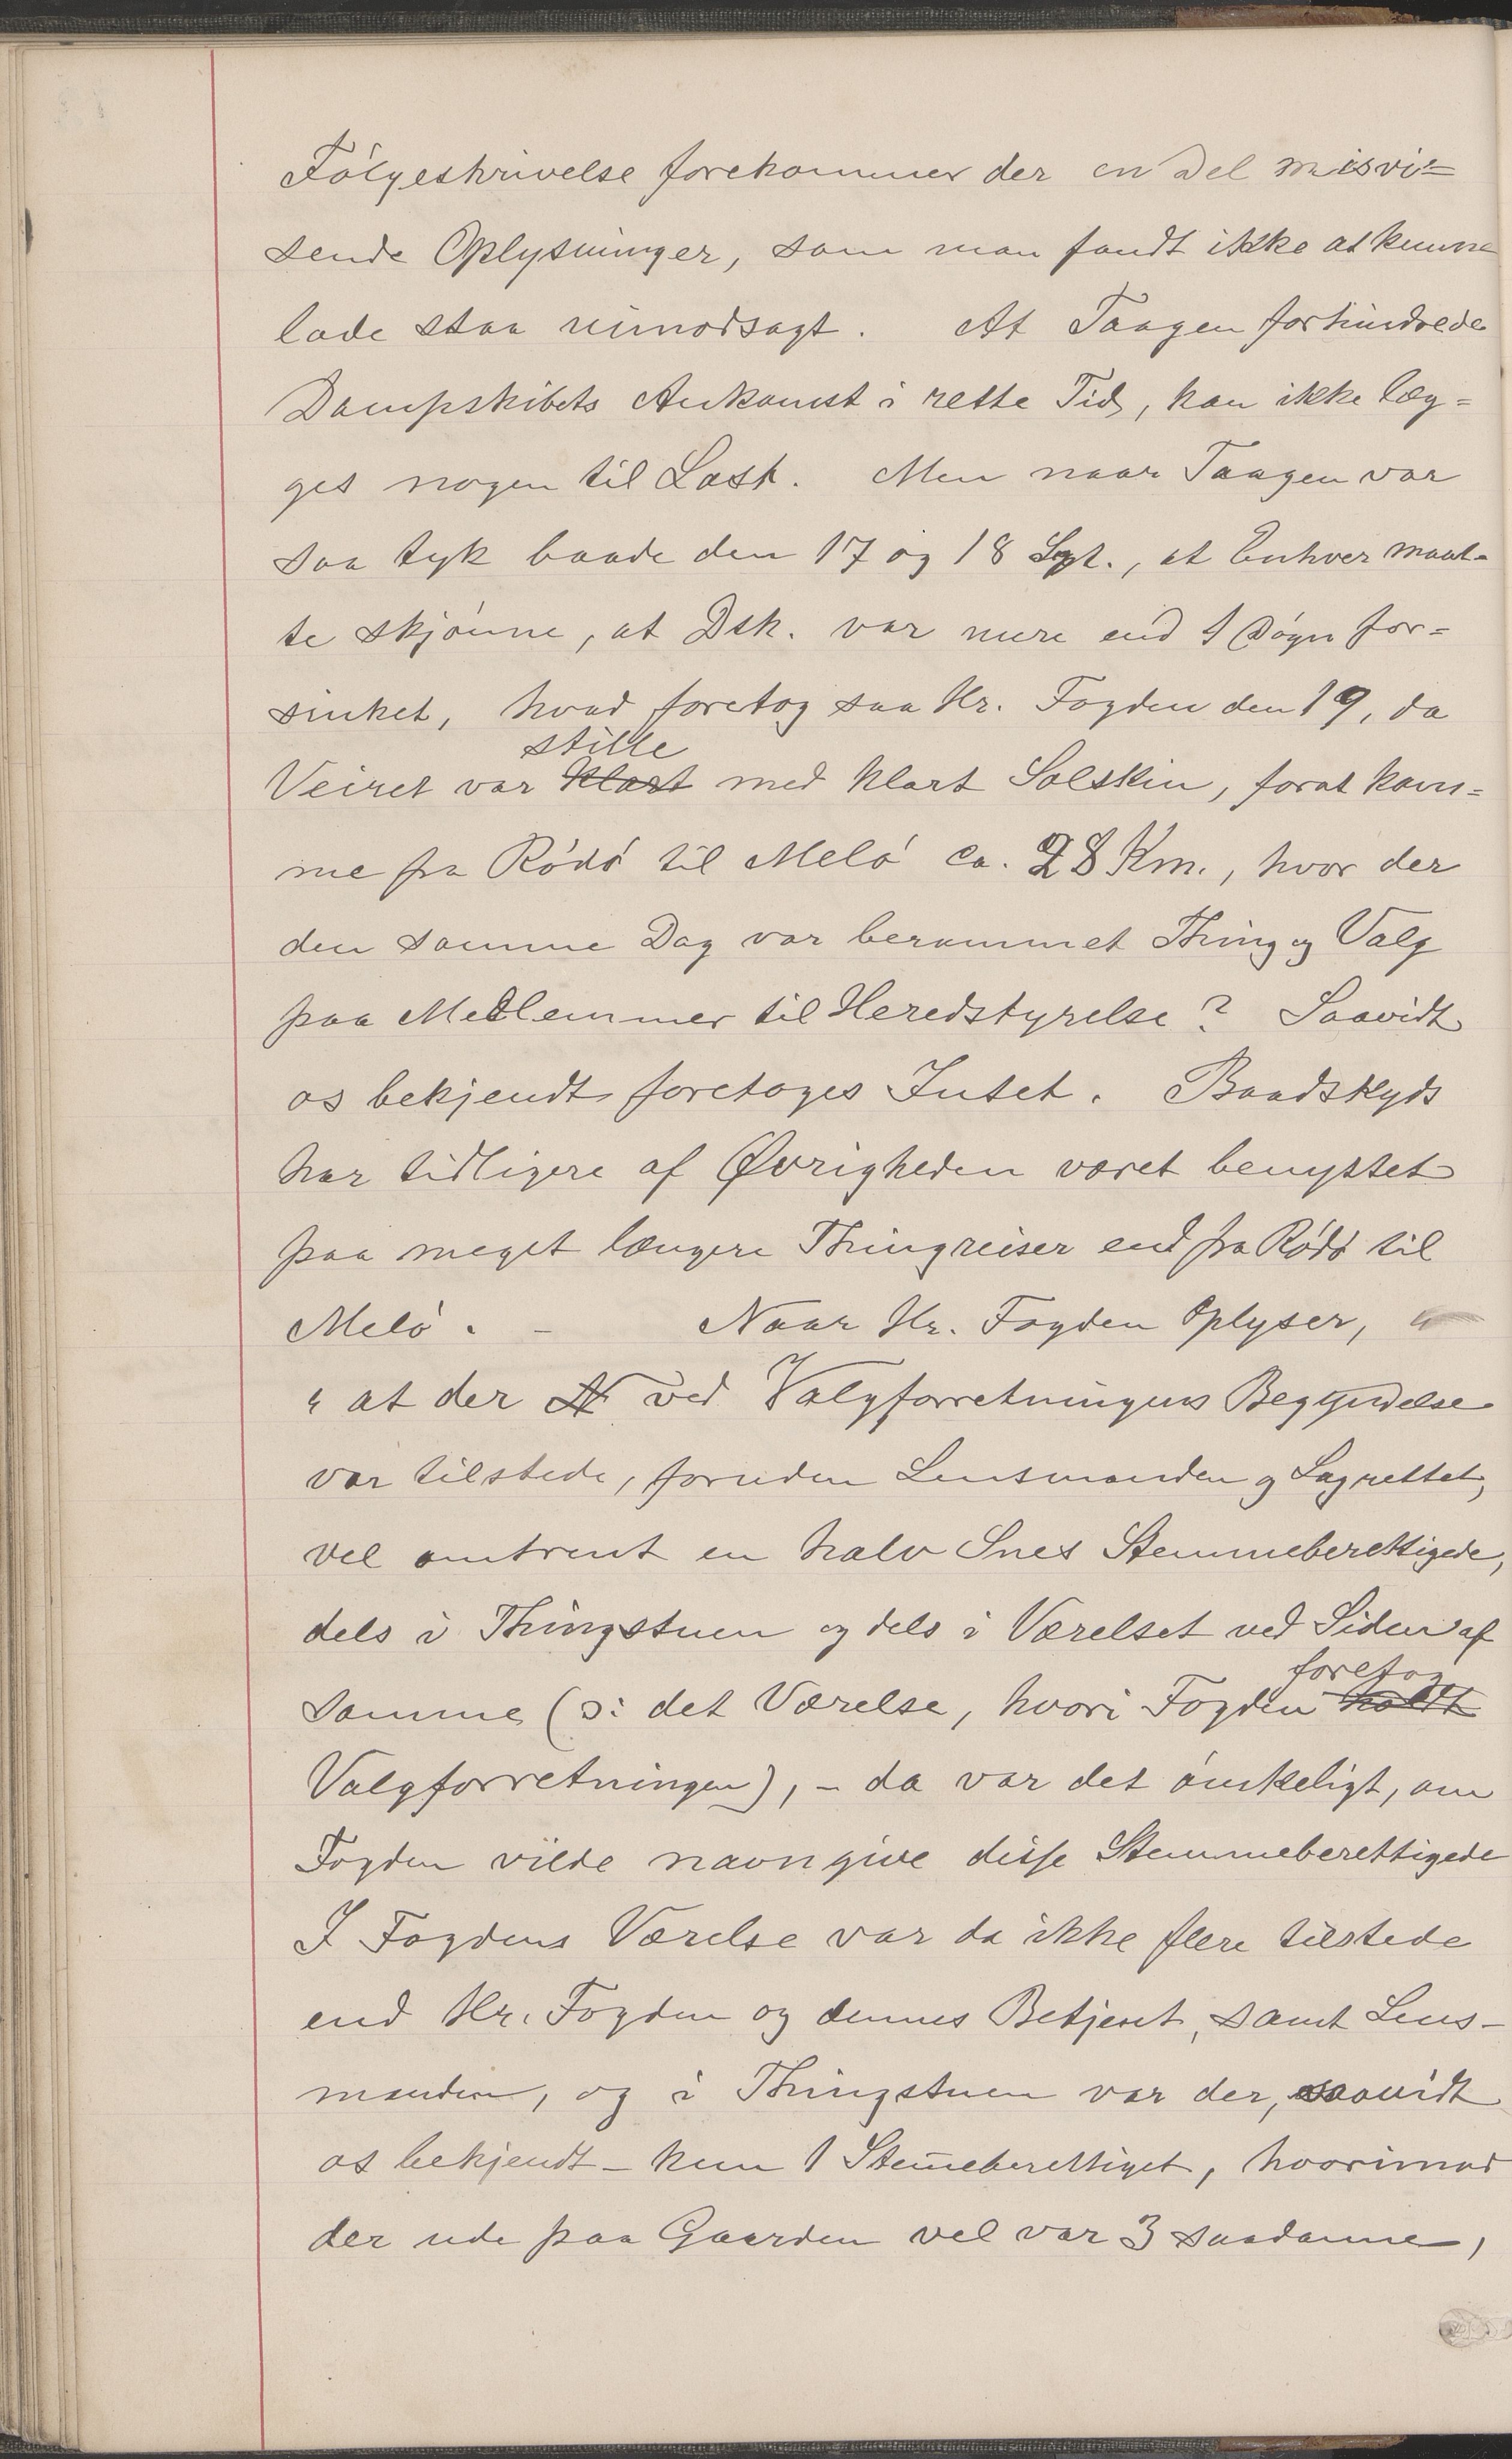 Følgeskrivelse forekommer der en Del misvi=
sende Oplysninger, som man fandt ikke at kunne
lade staa uimodsagt. At Taagen forhindrede
Dampskibets Ankomst i rette Tid, kan ikke læg=
ges nogen til Last. Men naar Taagen var
saa tyk baade den 17 og 18 Sept., at Enhver maat=
te skjønne, at Dsk. var mere end 1 Døgn for=
sinket, hvad foretog saa Hr. Fogden den 19, da
stille
Veiret var klart med klart Solskin, forat kom=
me fra Rødø til Melø ca. 28 Km., hvor der
den samme Dag var berammet Thing og Valg
paa Medlemmer til Heredstyrelse? Saavidt
os bekjendt foretoges Intet. Baadskyds
har tidligere af Øvrigheden været benyttet
paa meget længere Thingreiser end fra Rødø til
Melø. - Naar Hr. Fogden Oplyser,
" at der ved Valgforretningens Begyndelse
var tilstede, foruden Lensmanden og Lagrettet,
vel omtrent en halv Snes Stemmeberettigede,
dels i Thingstuen og dels i Værelset ved Siden af
foretog
samme (ɔ: det Værelse, hvori Fogden holdt
Valgforretningen), - da var det ønskeligt, om
Fogden vilde navngive disse Stemmeberettigede
I Fogdens Værelse var da ikke flere tilstede
end Hr. Fogden og dennes Betjent, samt Lens-
manden, og i Thingstuen var der, saavidt
os bekjendt - kun 1 Stem̄eberettiget, hvorimod
der ude paa Gaarden vel var 3 saadanne,